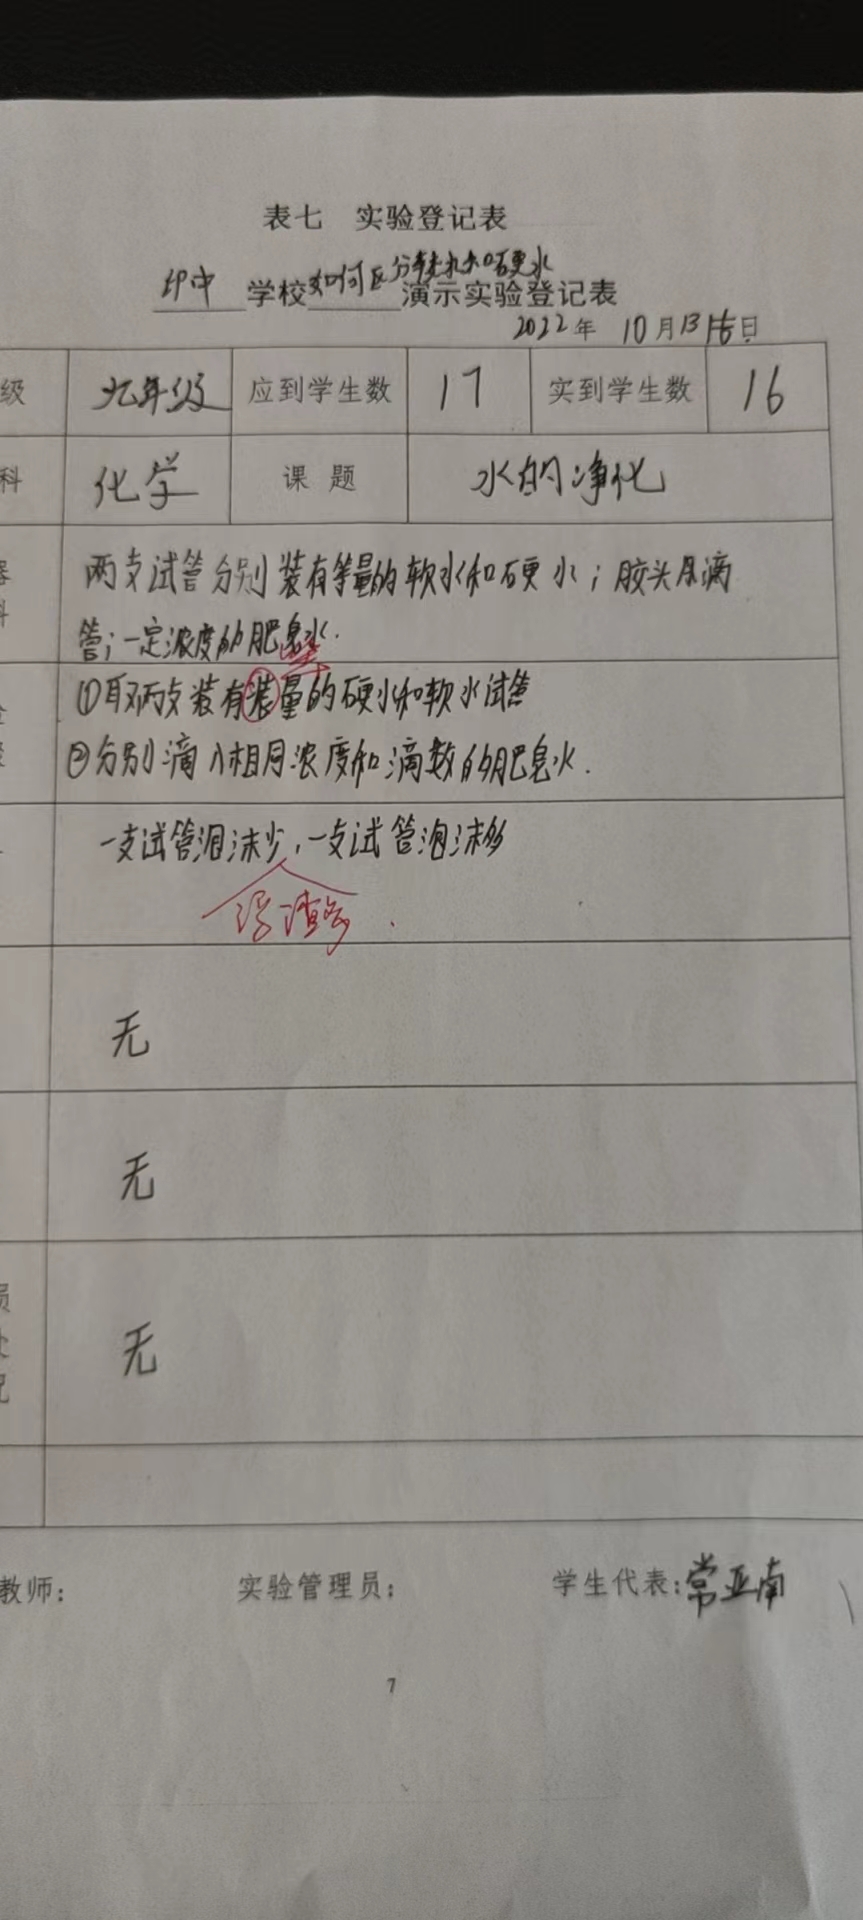 表七 实验登记表
印中 学校 如何区分软水和硬水 演示实验登记表
2022年 10月13日
级 九年级 应到学生数 17 实到学生数 16
科 化学 课题 水的净化
器 两支试管分别装有等量的软水和硬水；胶头滴
料 管；一定浓度的肥皂水.
等
①取两支装有装量的硬水和软水试管
②分别滴入相同浓度和滴数的肥皂水.
一支试管泡沫少，一支试管泡沫多
浮渣多.
无
无
损
处
况
无
教师： 实验管理员： 学生代表：常亚南
7